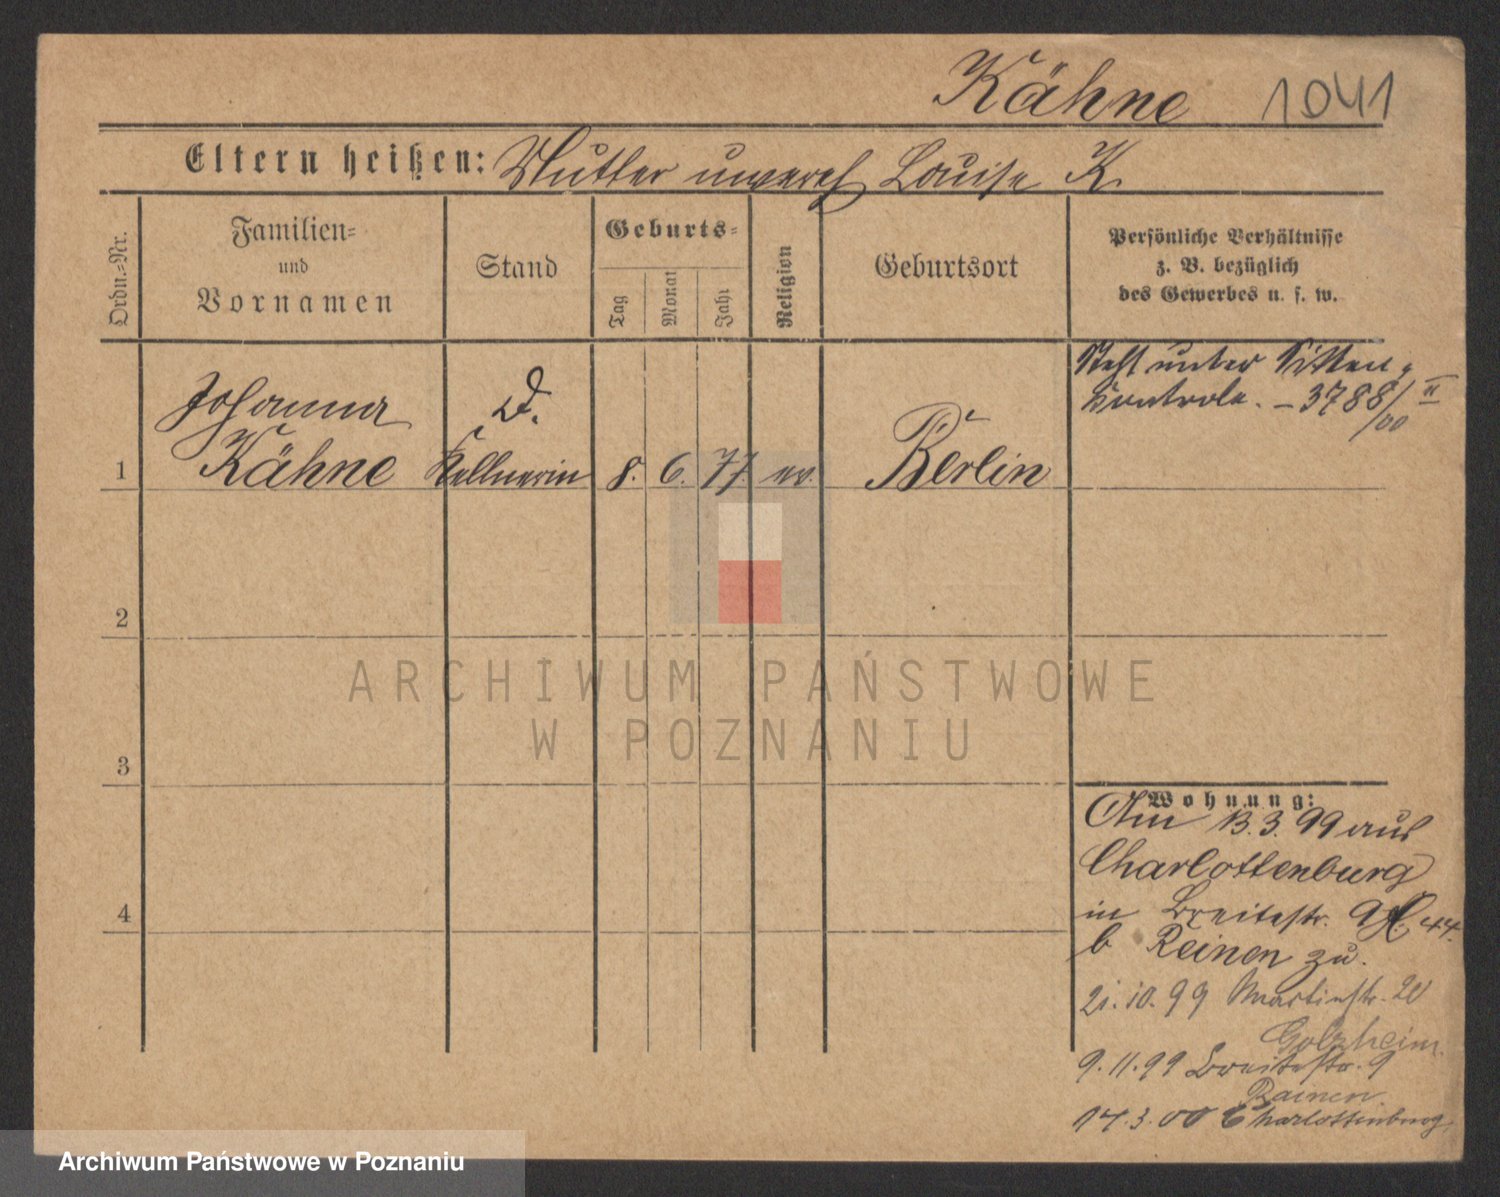 Kähne 1041
Eltern heißen: Mutter unvereh Louise K.
Ordn.-Nr.
Familien-
und
Vornamen
Stand
Geburts-
Tag
Monat
Jahr
Religion
Geburtsort
Persönliche Verhältnisse
z. B. bezüglich
des Gewerbes u. s. w.
Steht unter Sitten-
Kontrole. - 3788/II
/00
Johanna
Kähne
Kellnerin
1
8. 6. 77. ev.
Berlin
2
3
4
Wohnung:
Am 13.3.99 aus
Charlottenburg
in Breitestr. 9 44.
b Reinen zu.
21.10.99 Martinstr. 20
Golzheim.
9.11.99 Breitestr. 9
Rainen.
17.3.00 Charlottenburg
ARCHIWUM PAŃSTWOWE
W POZNANIU
Archiwum Państwowe w Poznaniu